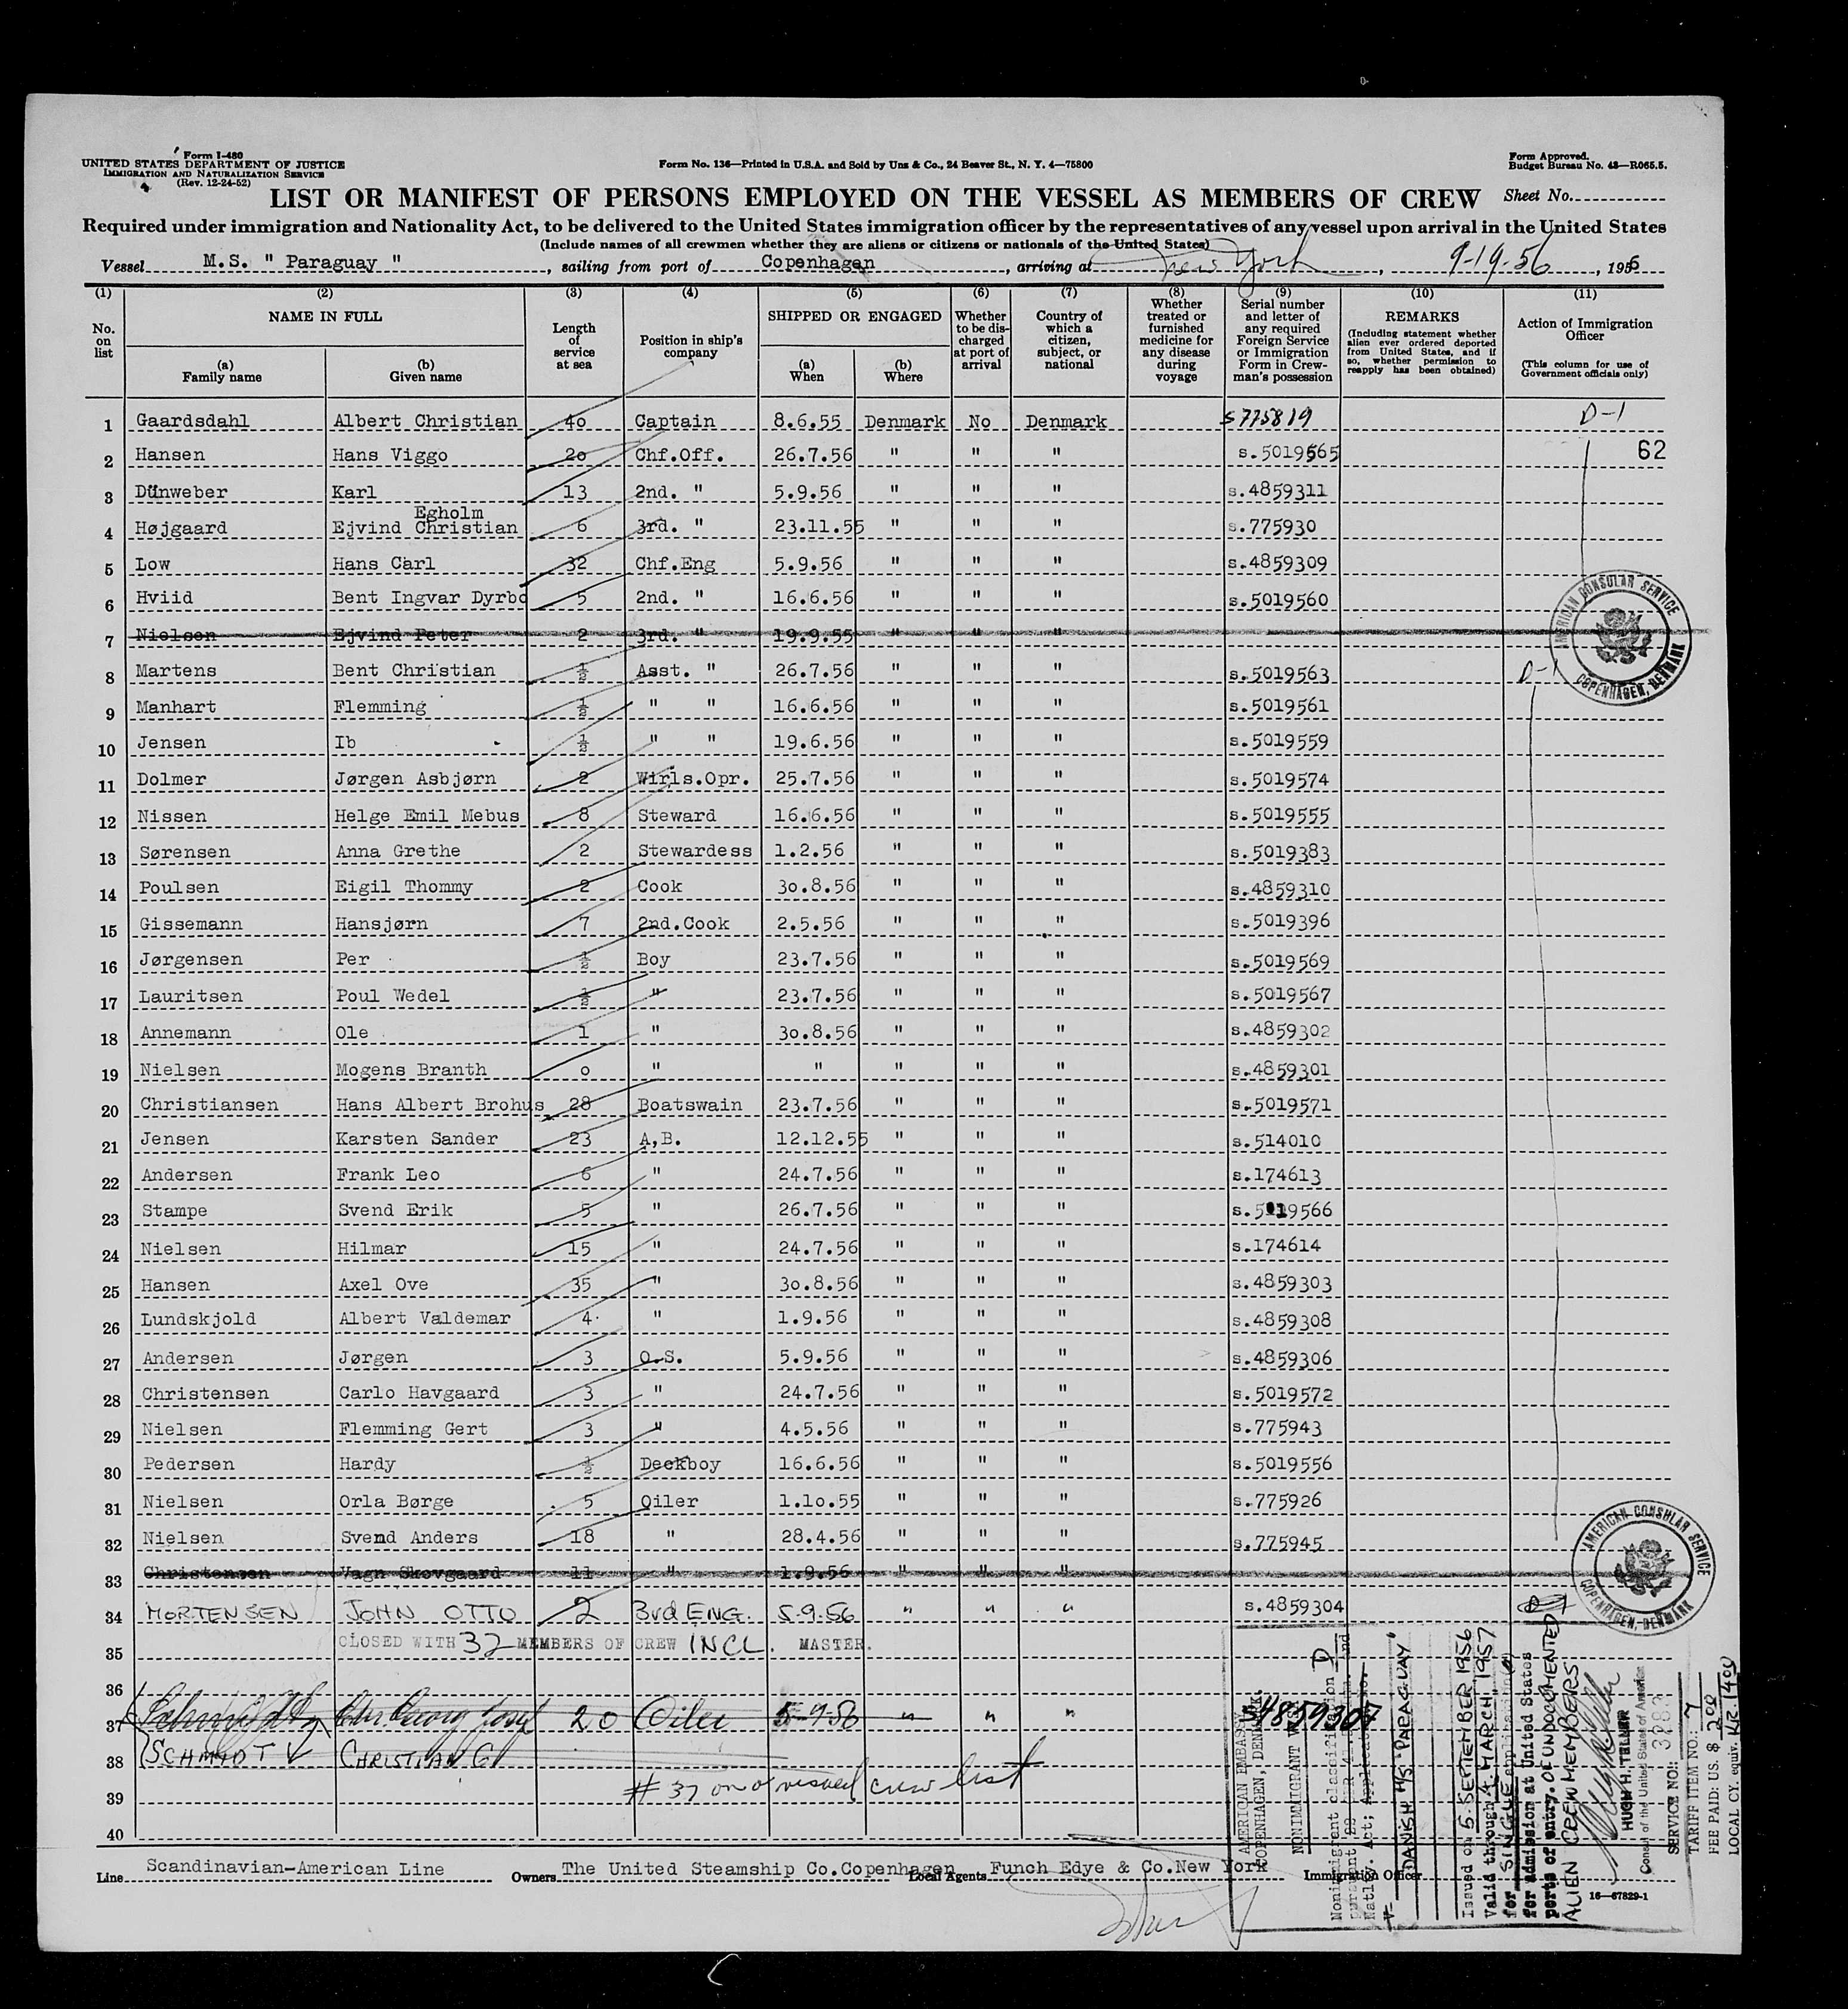 Form I-480
UNITED STATES DEPARTMENT OF JUSTICE
IMMIGRATION AND NATURALIZATION SERVICE
(Rev. 12-24-52)
Form No. 136—Printed in U.S.A. and Sold by Unz & Co., 24 Beaver St., N. Y. 4—75800
Form Approved.
Budget Bureau No. 43—R065.5.
LIST OR MANIFEST OF PERSONS EMPLOYED ON THE VESSEL AS MEMBERS OF CREW Sheet No.
Required under immigration and Nationality Act, to be delivered to the United States immigration officer by the representatives of any vessel upon arrival in the United States
(Include names of all crewmen whether they are aliens or citizens or nationals of the United States)
Vessel M.S. " Paraguay " , sailing from port of Copenhagen , arriving at New York , 9-19-56 , 1956
(1) (2) (3) (4) (5) (6) (7) (8) (9) (10) (11)
No. on list
NAME IN FULL
(a) Family name
(b) Given name
Length of service at sea
Position in ship's company
SHIPPED OR ENGAGED
(a) When
(b) Where
Whether to be discharged at port of arrival
Country of which a citizen, subject, or national
Whether treated or furnished medicine for any disease during voyage
Serial number and letter of any required Foreign Service or Immigration Form in Crewman's possession
REMARKS
(Including statement whether alien ever ordered deported from United States, and if so, whether permission to reapply has been obtained)
Action of Immigration Officer
(This column for use of Government officials only)
1 Gaardsdahl Albert Christian 4o Captain 8.6.55 Denmark No Denmark S775819 D-1
2 Hansen Hans Viggo 2o Chf.Off. 26.7.56 " " " s.5019565 62
3 Dünweber Karl 13 2nd. " 5.9.56 " " " s.4859311
Egholm
4 Højgaard Ejvind Christian 6 3rd. " 23.11.55 " " " s.775930
5 Low Hans Carl 32 Chf.Eng 5.9.56 " " " s.4859309
6 Hviid Bent Ingvar Dyrbo 5 2nd. " 16.6.56 " " " s.5019560
7 Nielsen Ejvind Peter 2 3rd. " 19.9.55 " " "
8 Martens Bent Christian ½ Asst. " 26.7.56 " " " s.5019563 D-1
9 Manhart Flemming ½ " " 16.6.56 " " " s.5019561
10 Jensen Ib ½ " " 19.6.56 " " " s.5019559
11 Dolmer Jørgen Asbjørn 2 Wirls.Opr. 25.7.56 " " " s.5019574
12 Nissen Helge Emil Mebus 8 Steward 16.6.56 " " " s.5019555
13 Sørensen Anna Grethe 2 Stewardess 1.2.56 " " " s.5019383
14 Poulsen Eigil Thommy 2 Cook 3o.8.56 " " " s.4859310
15 Gissemann Hansjørn 7 2nd.Cook 2.5.56 " " " s.5019396
16 Jørgensen Per ½ Boy 23.7.56 " " " s.5019569
17 Lauritsen Poul Wedel ½ " 23.7.56 " " " s.5019567
18 Annemann Ole 1 " 3o.8.56 " " " s.4859302
19 Nielsen Mogens Branth o " " " " " s.4859301
20 Christiansen Hans Albert Brohus 28 Boatswain 23.7.56 " " " s.5019571
21 Jensen Karsten Sander 23 A,B. 12.12.55 " " " s.514010
22 Andersen Frank Leo 6 " 24.7.56 " " " s.174613
23 Stampe Svend Erik 5 " 26.7.56 " " " s.5019566
24 Nielsen Hilmar 15 " 24.7.56 " " " s.174614
25 Hansen Axel Ove 35 " 3o.8.56 " " " s.4859303
26 Lundskjold Albert Valdemar 4 " 1.9.56 " " " s.4859308
27 Andersen Jørgen 3 O.S. 5.9.56 " " " s.4859306
28 Christensen Carlo Havgaard 3 " 24.7.56 " " " s.5019572
29 Nielsen Flemming Gert 3 " 4.5.56 " " " s.775943
30 Pedersen Hardy ½ Deckboy 16.6.56 " " " s.5019556
31 Nielsen Orla Børge 5 Oiler 1.1o.55 " " " s.775926
32 Nielsen Svend Anders 18 " 28.4.56 " " " s.775945
33 Christensen Vagn Skovgaard 11 " 1.9.56 " " "
34 MORTENSEN JOHN OTTO 2 3rd ENG. 5.9.56 " " " s.4859304
35 CLOSED WITH 32 MEMBERS OF CREW INCL. MASTER.
36
37 20 Oiler 5-9-56 " " " S4859307
38 SCHMIDT CHRISTIAN G
# 37 on crew list
39
40
AMERICAN CONSULAR SERVICE
COPENHAGEN, DENMARK
AMERICAN CONSULAR SERVICE
COPENHAGEN, DENMARK
AMERICAN EMBASSY
COPENHAGEN, DENMARK.
NONIMMIGRANT
Nonimmigrant classification D
Natlty. Act; Application
V- DANISH M/S "PARAGUAY"
Issued on 5 SEPTEMBER 1956
Valid through 4 MARCH, 1957
for SINGLE application(s)
for admission at United States
ports of entry. OF UNDOCUMENTED
ALIEN CREW MEMBERS
HUGH H. TELLER
Consul of the United States of America
SERVICE NO.: 3283
TARIFF ITEM NO.: 7
FEE PAID: US. $ 2.00
LOCAL CY. equiv. KR. 14.00
Line Scandinavian-American Line Owners The United Steamship Co.Copenhagen Local Agents Funch Edye & Co.New York Immigration Officer
16—67829-1